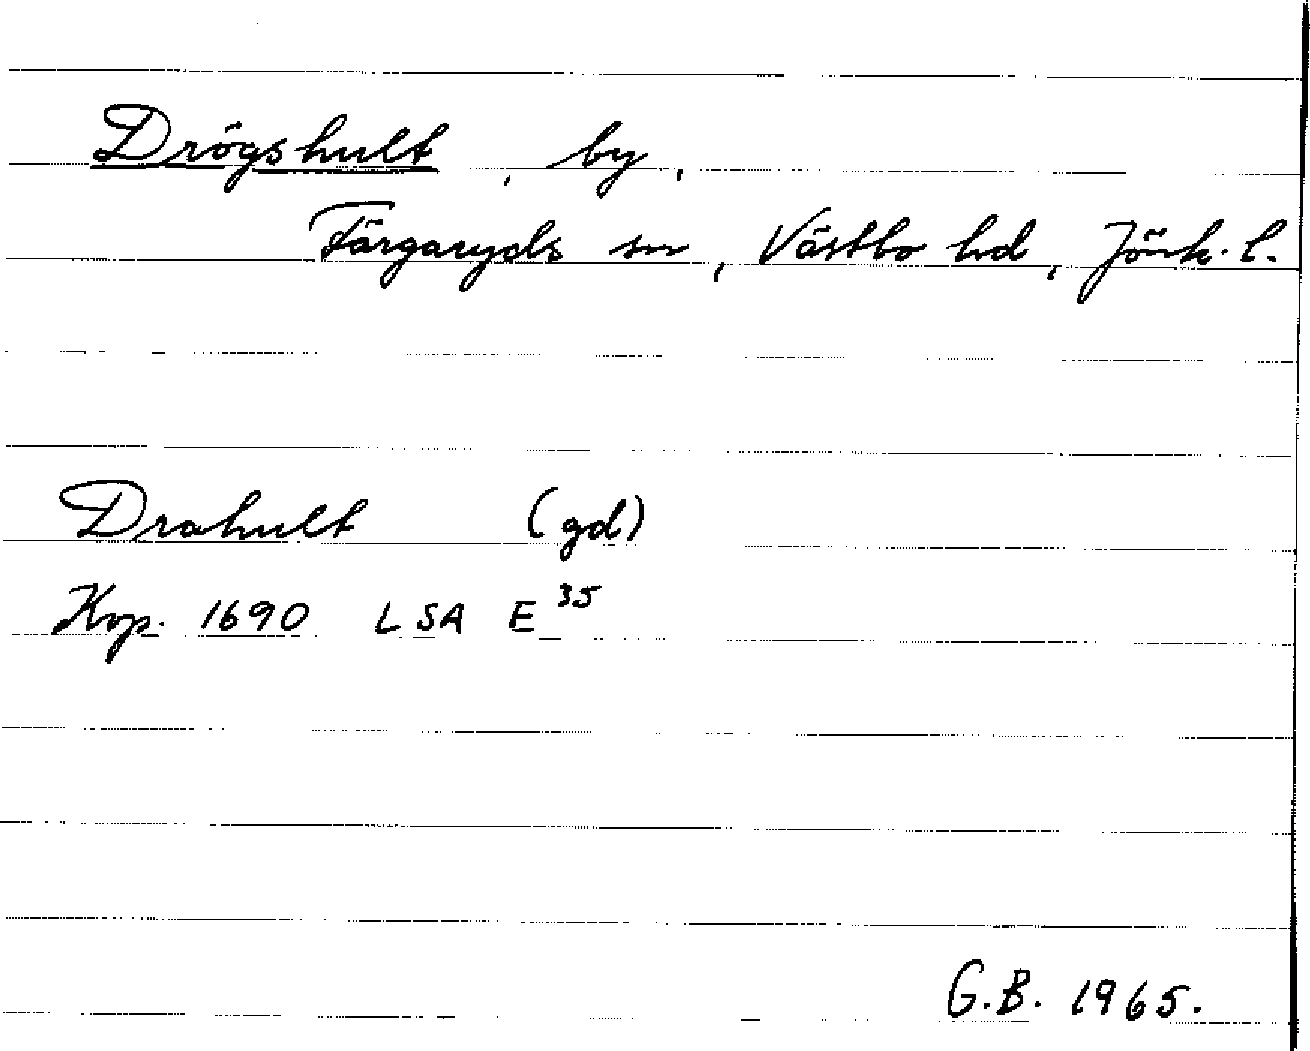 Drögshult, by,
Färgaryds sn, Västbo hd, Jönk. l.
Drahult (gd)
Kop. 1690 LSA E³⁵
G.B. 1965.